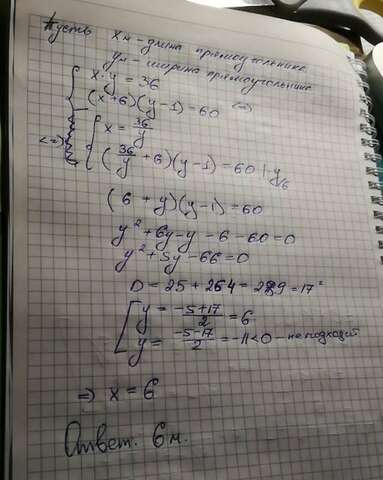 Пусть x м - длина прямоугольника
y м - ширина прямоугольника
{ x·y = 36
(x+6)(y-1) = 60 <=>
<=> { x = 36/y
(36/y + 6)(y-1) = 60 | · y/6
(6 + y)(y-1) = 60
y² + 6y - y - 6 - 60 = 0
y² + 5y - 66 = 0
D = 25 + 264 = 289 = 17²
[ y = (-5+17)/2 = 6
y = (-5-17)/2 = -11 < 0 - не подходит
=> x = 6
Ответ: 6 м.